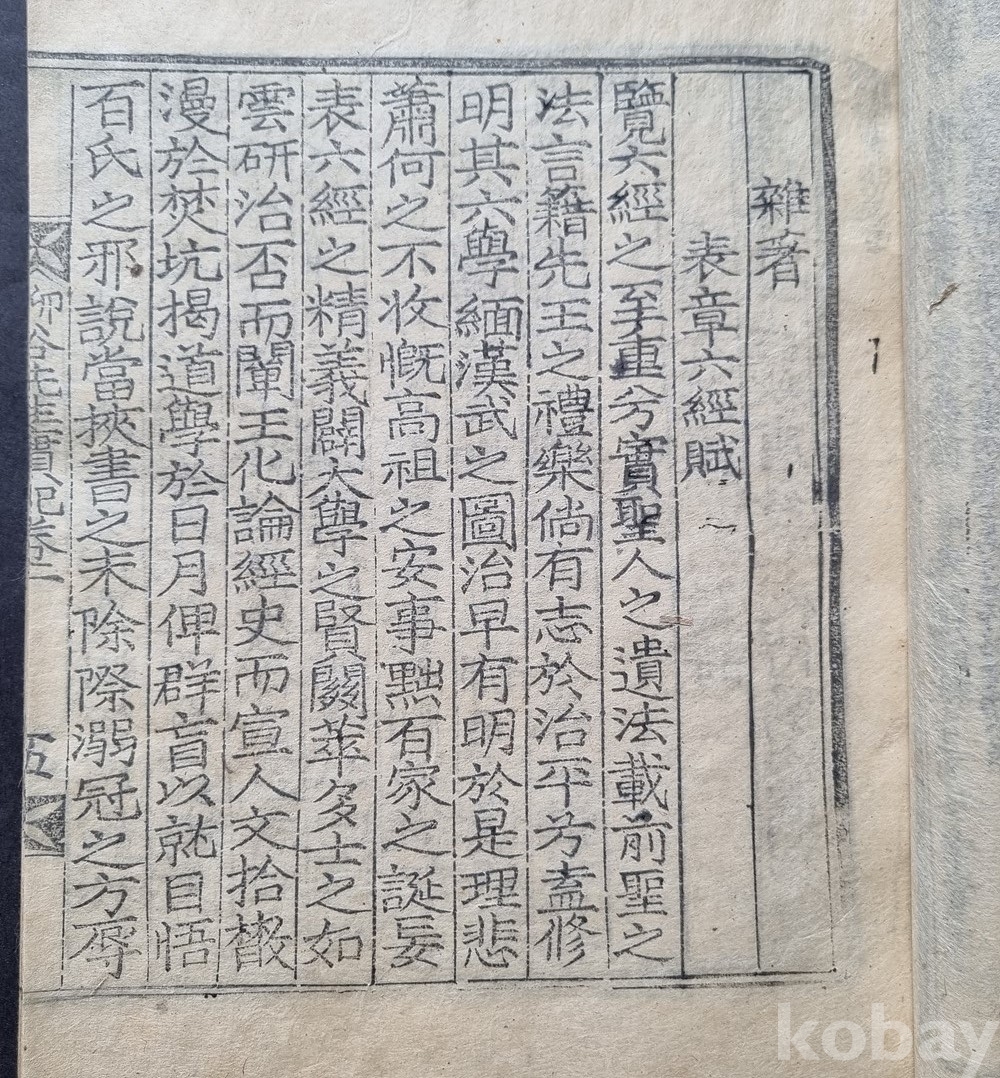 雜著
表章六經賦
覽六經之至重兮實聖人之遺法載前聖之
法言籍先王之禮樂倘有志於治平兮盍修
明其六學緬漢武之圖治早有明於是理悲
蕭何之不收慨高祖之安事黜百家之誕妄
表六經之精義闢大學之賢關萃多士之如
雲研治否而闡王化論經史而宣人文拾散
漫於焚坑揭道學於日月俾群盲以就目悟
百氏之邪說當挾書之未除際溺冠之方辱
先生實紀卷二
五
kobay